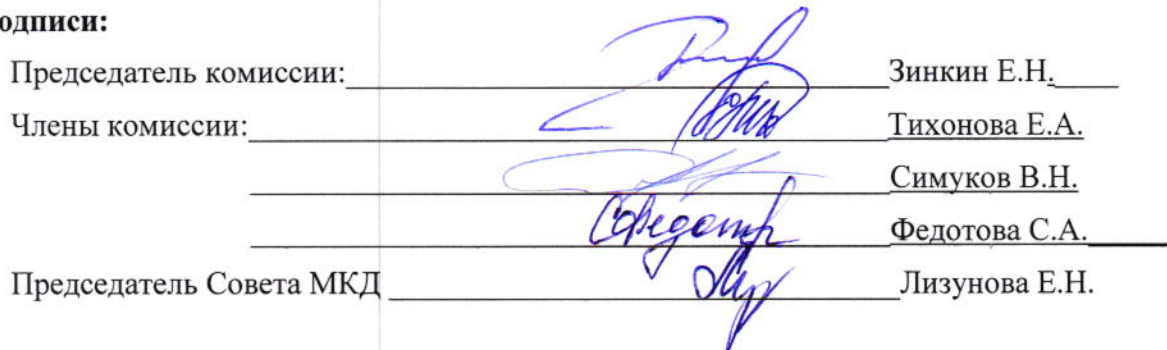 одписи:
Председатель комиссии: Зинкин Е.Н.
Члены комиссии: Тихонова Е.А.
Симуков В.Н.
Федотова С.А.
Председатель Совета МКД Лизунова Е.Н.